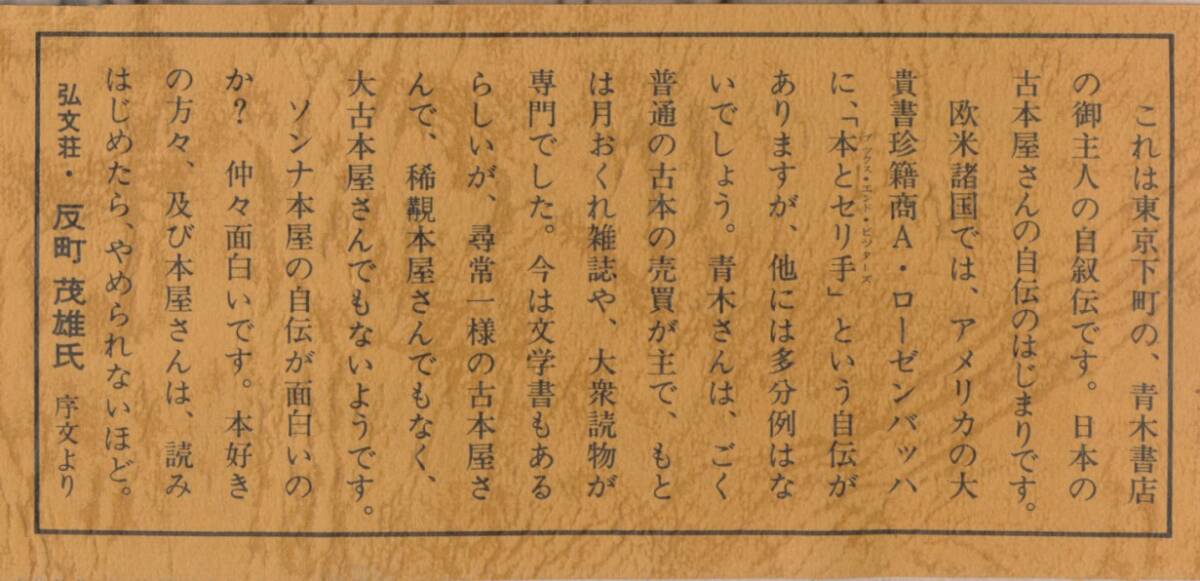 これは東京下町の、青木書店
の御主人の自叙伝です。日本の
古本屋さんの自伝のはじまりです。
欧米諸国では、アメリカの大
貴書珍籍商A・ローゼンバッハ
に、「本とセリ手」という自伝が
ブックス・エンド・ビッターズ
ありますが、他には多分例はな
いでしょう。青木さんは、ごく
普通の古本の売買が主で、もと
は月おくれ雑誌や、大衆読物が
専門でした。今は文学書もある
らしいが、尋常一様の古本屋さ
んで、稀覯本屋さんでもなく、
大古本屋さんでもないようです。
ソンナ本屋の自伝が面白いの
か？ 仲々面白いです。本好き
の方々、及び本屋さんは、読み
はじめたら、やめられないほど。
弘文荘・反町茂雄氏 序文より